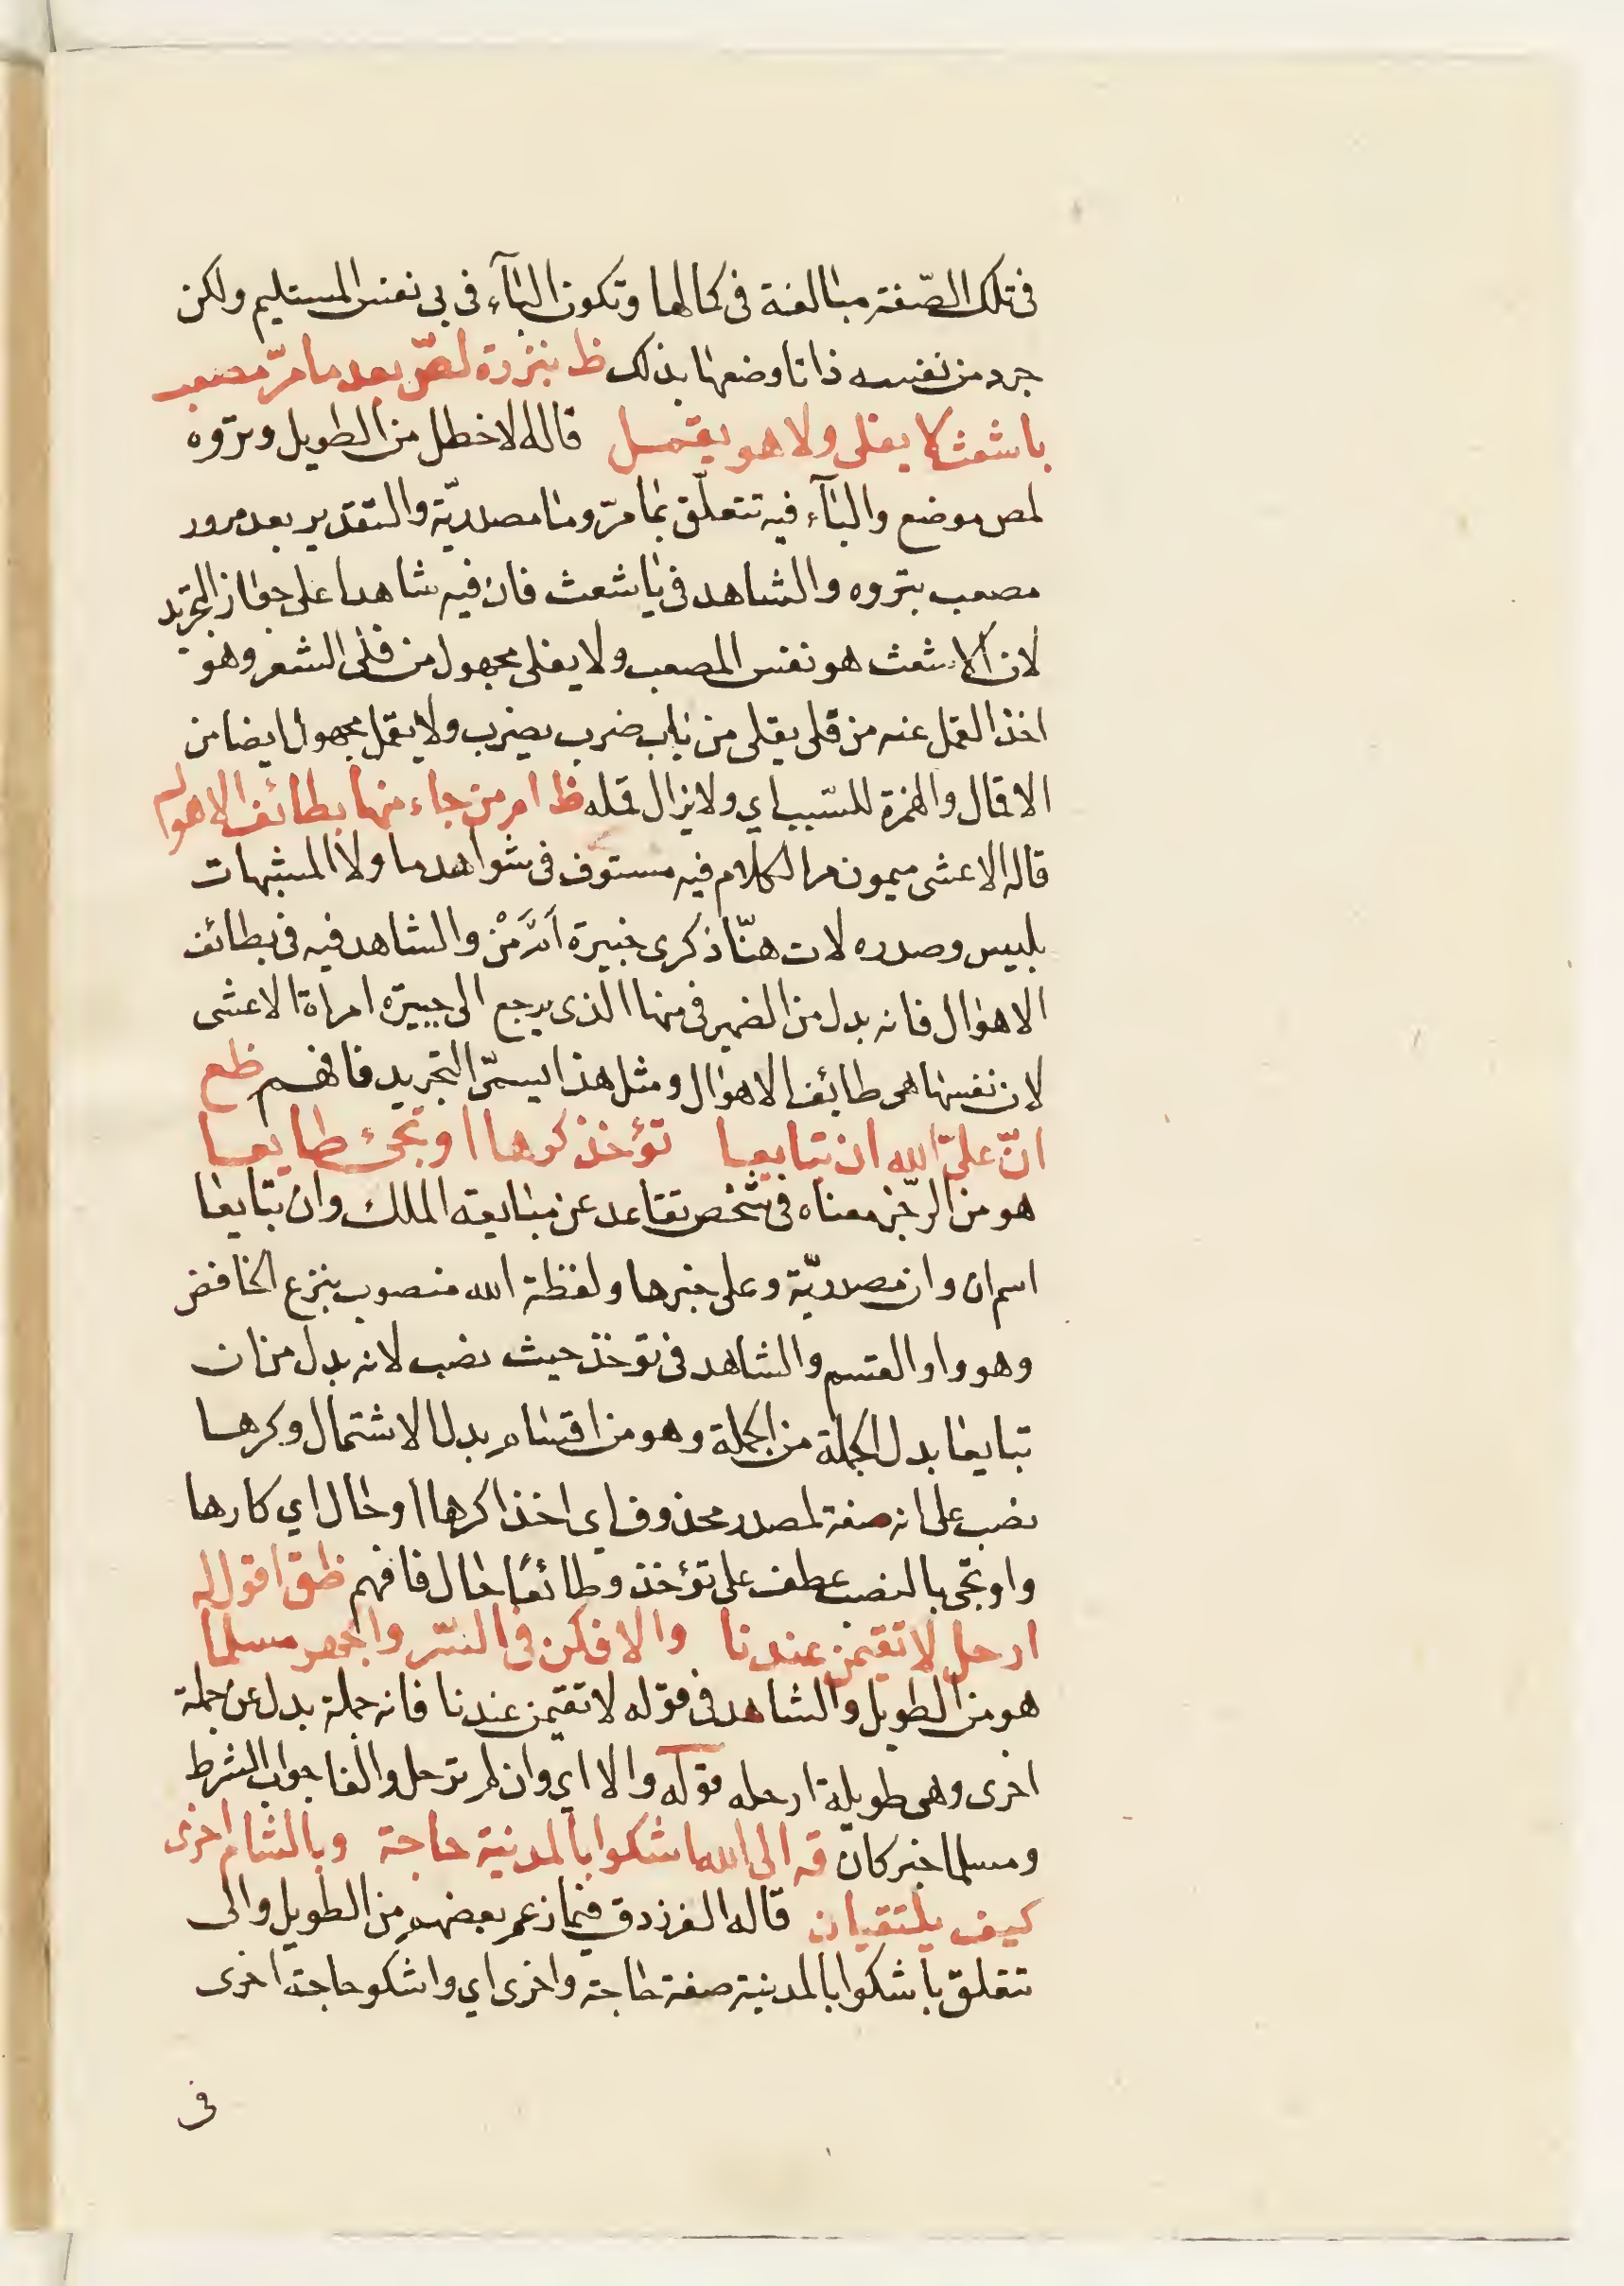 في تلك الصّفة مبالغة في كمالها وتكون البآء في بي نفس المستليم ولكن
جرد من نفسه ذاتا وضعها بذلك ظ بنزوة لصّ بعد ما مرّ مصعب
باشعث لا يفلى ولا هو يقمل قاله الاخطل من الطويل وبتروه
لمص موضع والبآء فيه تتعلّق بما مرّ وما مصدريّة والتقدير بعد مرور
مصعب بتروه والشاهد في باشعث فان فيه شاهدا على جواز التجريد
لان الاشعث هو نفس المصعب ولا يفلى مجهول من فلى الشعر وهو
اخذ القمل عنه من فلى يفلى من باب ضرب يضرب ولا يقمل مجهول ايضا من
الاقمال والهمزة للسبب اي ولا يزال قمله ظ ام من جاء منها بطائف الاهوال
قاله الاعشى ميمون مر الكلام فيه مستوف في شواهد ما ولا المشبهات
بليس وصدره لات هنّا ذكرى جبيرة اَمْ مَنْ والشاهد فيه في بطائف
الاهوال فانه بدل من الضمير في منها الذي يرجع الى جبيرة امراة الاعشى
لان نفسها هي طائف الاهوال ومثل هذا يسمّى التجريد فافهم ظع
انّ عليّ الله ان تبايعا تؤخذ كرها او تجئ طايعا
هو من الرّجز معناه في شخص تقاعد عن مبايعة الملك وان تبايعا
اسم ان وان مصدريّة وعلى خبرها ولفظة الله منصوب بنزع الخافض
وهو واو القسم والشاهد في توخذ حيث نصب لانه بدل من ان
تبايعا بدل الجملة من الجملة وهو من اقسام بدل الاشتمال وكرها
نصب على انه صفة لمصدر محذوف اي اخذا كرها او حال اي كارها
واو تجى بالنصب عطف على تؤخذ وطائعًا حال فافهم ظق اقول له
ارحل لا تقيمن عندنا والا فكن في السّر والجهر مسلما
هو من الطويل والشاهد في قوله لا تقيمن عندنا فانه جملة بدل عن جملة
اخرى وهى طويلة ارحله قوله والا اي وان لم ترحل والفا جواب الشرط
ومسلما خبر كان قه الى الله اشكوا بالمدينة حاجة وبالشام اخرى
كيف يلتقيان قاله الفرزدق فيما زعم بعضهم من الطويل والى
تتعلق باشكوا بالمدينة صفة حاجة واخرى اي واشكو حاجة اخرى
في